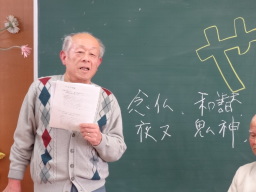 念仏、和讃
夜叉 鬼神